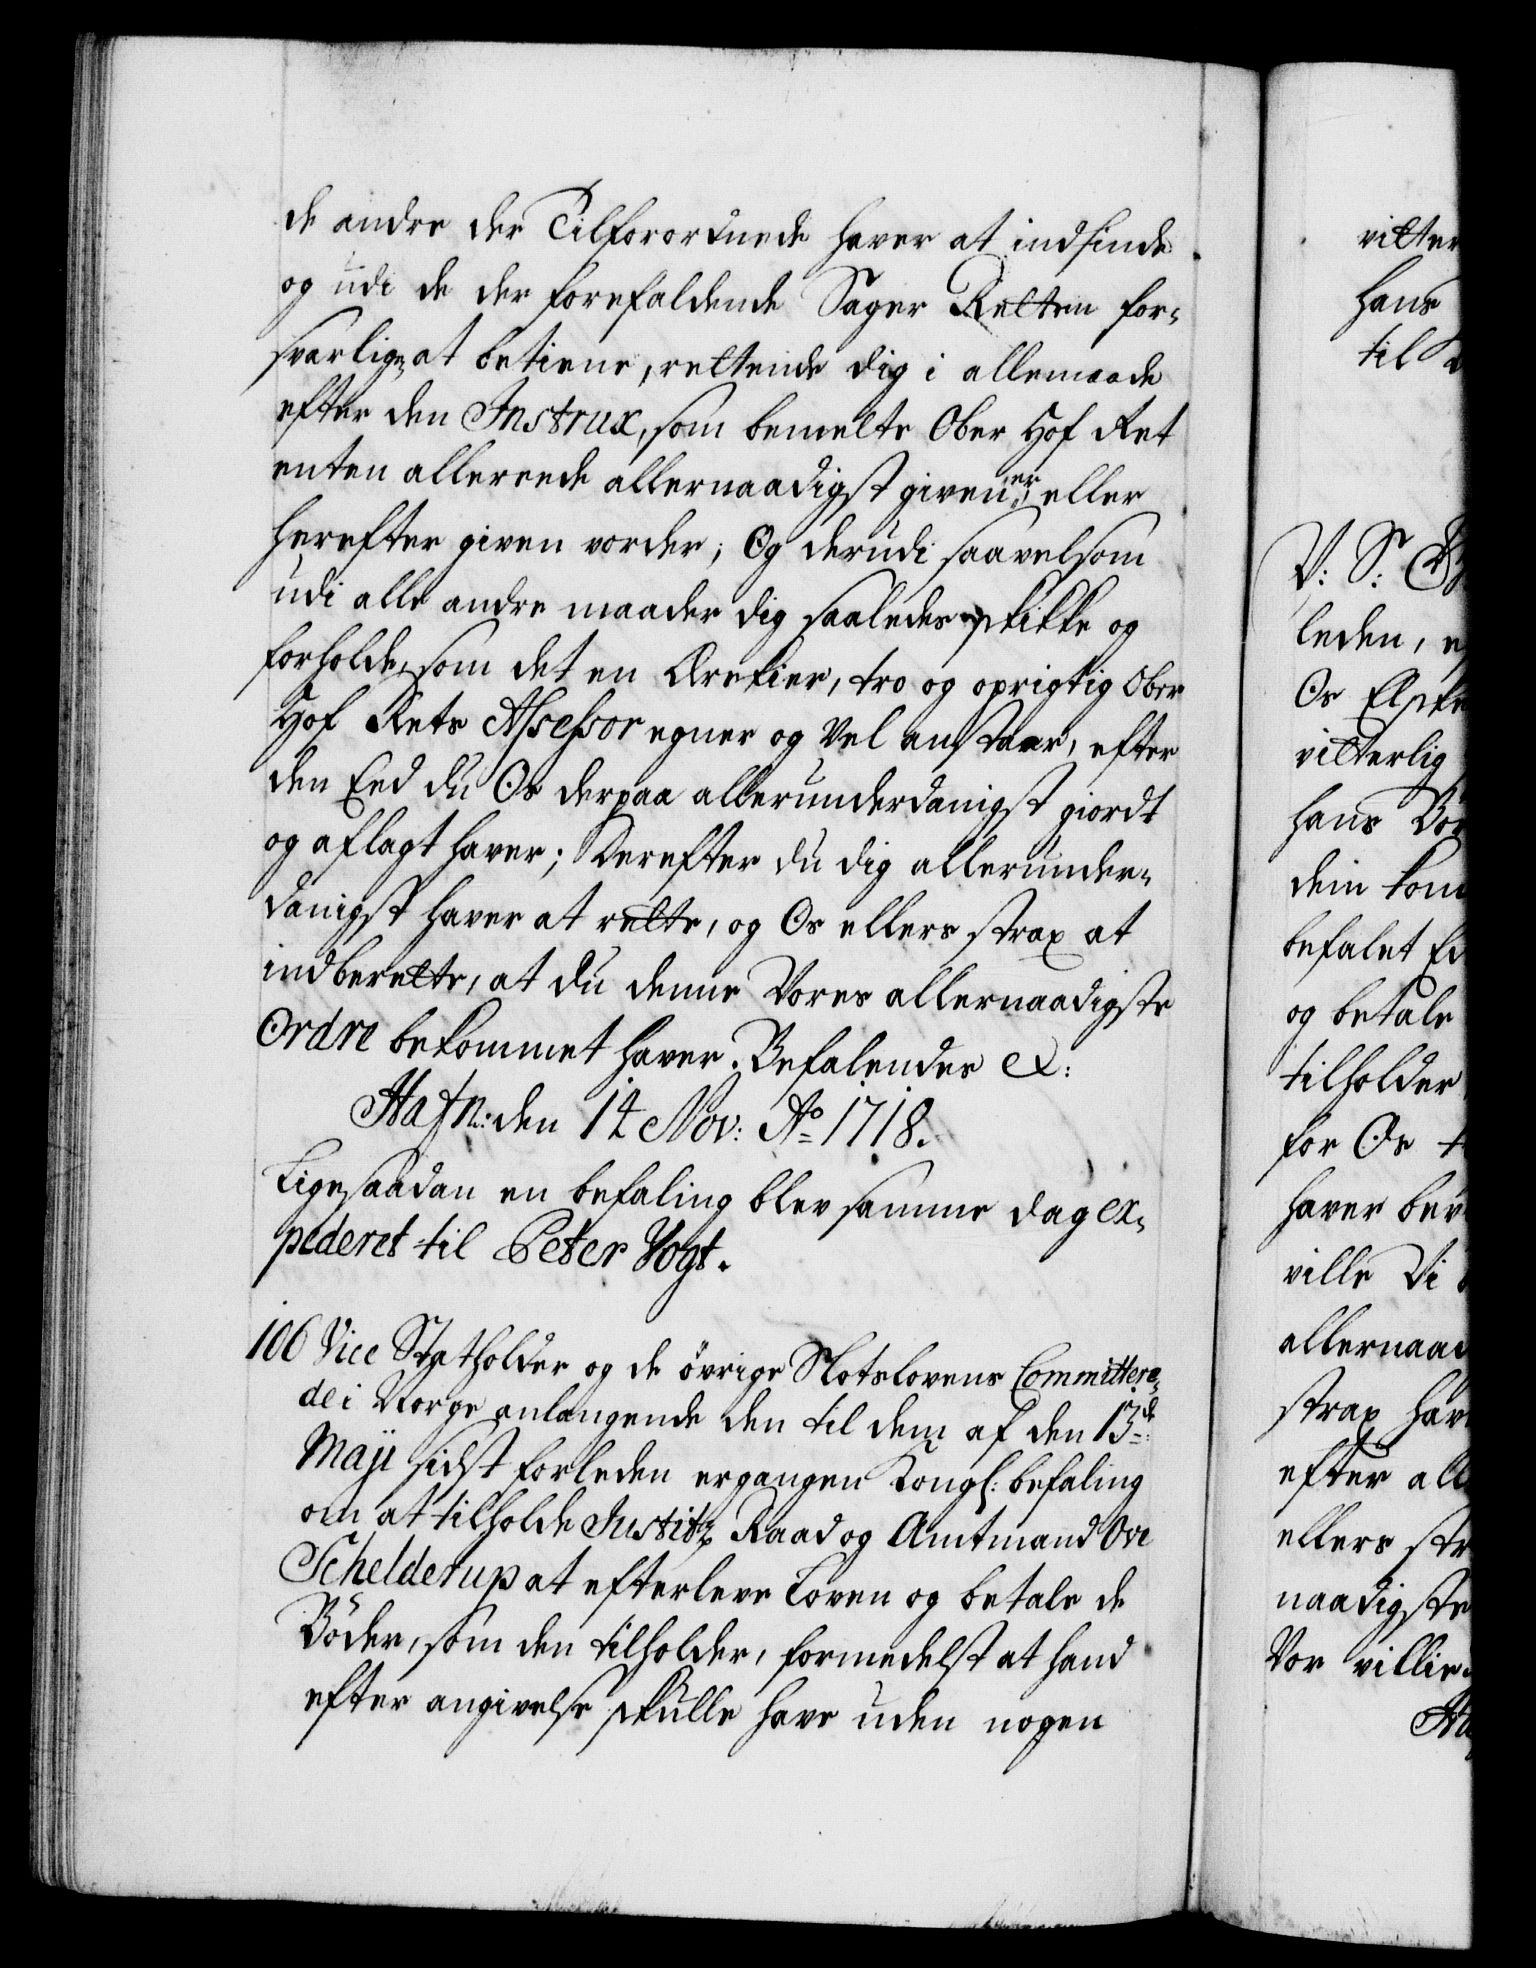 de andre der Tilforordnede haver at indfinde
og udi de der forefaldende Sager Retten for-
svarlig at betiene, rettende dig i allemaade
efter den Instrux, som bemelte Ober Hof Ret
enten allerede allernaadigst given er, eller
herefter given vorder; Og derudi saavelsom
udi alle andre maader dig saaledes skikke og
forholde, som det en Ærekier, tro og oprigtig Ober
Hof Rets Assessor egner og Vel anstaar, efter
den Eed du Os derpaa allerunderdanigst giordt
og aflagt haver; Derefter du dig allerunder-
danigst haver at rette, og Os ellers strax at
indberette, at du denne Vores allernaadigste
Ordre bekommet haver. Befalendes &:
Hafn: den 14 Nov: Ao 1718.
Ligesaadan en befaling blev samme dag ex-
pederet til Peter Vogt.
106 Vice Statholder og de övrige Slotslovens Committere-
de i Norge anlangende den til dem af den 13de
Maji sidst forleden ergangen Kongl: befaling
om at tilholde Justitz Raad og Amtmand Ove
Schelderup at efterleve Loven og betale de
Böder, som den tilholder, formedelst at hand
efter angivelse skulle have uden nogen
vitter
hans
til
V: S:
leden,
Os Elske
vitterlig
hans
dem kom
befalet
og betale
tilholder
for Os
haver bev
ville Vi
allernaad
strax hav
efter all
ellers str
naadigste
Vor villie